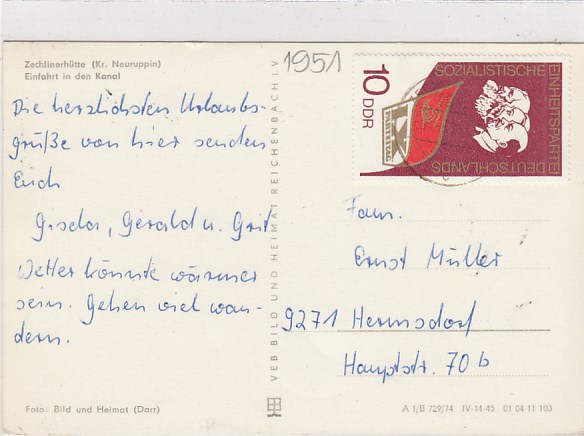 Zechlinerhütte (Kr. Neuruppin)
Einfahrt in den Kanal
1951
Die herzlichsten Urlaubs-
grüße von hier senden
Euch
Gisela, Gerald u. Grit
Wetter könnte wärmer
sein. Gehen viel wan-
dern.
VEB BILD UND HEIMAT REICHENBACH i. V
10 DDR
SOZIALISTISCHE
EINHEITSPARTEI
DEUTSCHLANDS
IX.
PARTEITAG
Fam.
Ernst Müller
9271 Hermsdorf
Hauptstr. 70 b
Foto: Bild und Heimat (Darr)
A 1/B 729/74 IV-14-45 01 04 11 103